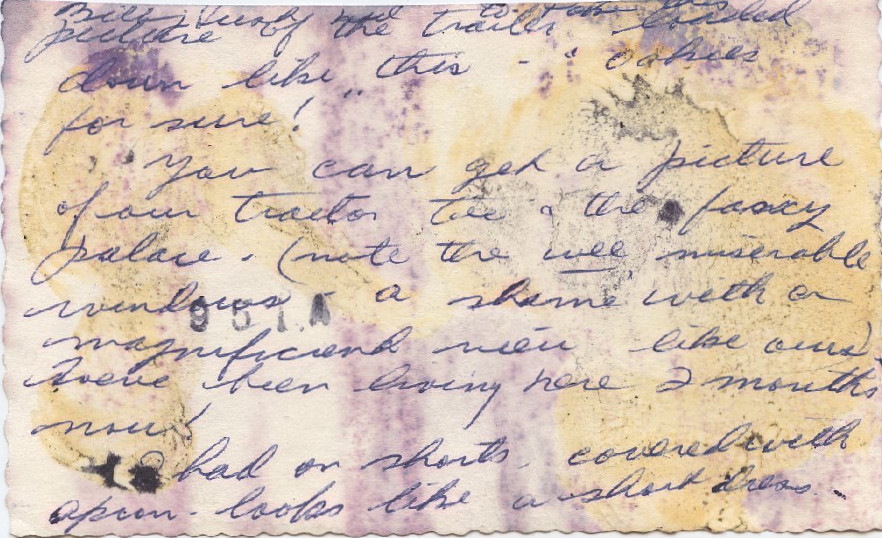 picture of the trailer loaded
down like this - "oakies"
for sure!
You can get a picture
of our tractor too & the foxxy
palace. (note the wee miserable
windows - a shame with a
magnificient view like ours)
been living here 2 months
now!
951A
had on shorts, covered with
apron - looks like a short dress.